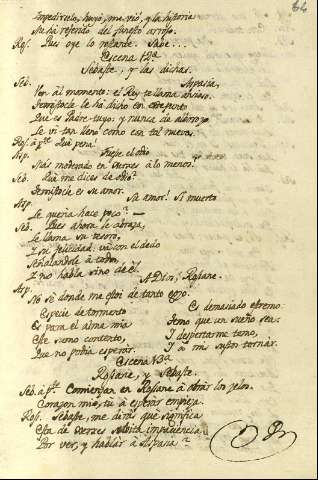 64
Impedirselo, huyó, me vió, y la historia
Me ha referido del funesto arrojo.
Ros. Pues oye lo restante. Sabe...
Escena 12ª
Sebaste, y las dichas.
Seb. Aspasia,
Ven al momento: el Rey te llama ansioso.
Temistocle le ha dicho en este punto
Que es Padre tuyo: y nunca de alborozo
Le vi tan lleno como con tal nueva.
Ros. á pte. Qué pena!
Asp. Fuese el odio
Mas moderado en Xerxes á lo menos.
Seb. Qué me dices de odio?
Temistocle es su amor.
Asp. Su amor! Si muerto
Le queria hace poco?
Seb. Pues ahora le abraza,
Le llama su tesoro,
Y su felicidad: vá con el dedo
Señalandole á todos,
Y no habla sino de él.
Asp. A Dios, Rosane.
No sé donde me estoi de tanto gozo.
Especie de tormento
Es para el alma mia
Este sumo contento,
Que no podia esperar.
Es demasiado estremo:
Temo que un sueño sea:
Y despertarme temo,
Y á mis sustos tornar.
Escena 13ª
Rosane, y Sebaste.
Seb. á pte. Comienzan en Rosane á obrar los zelos.
Corazon mio, tú á esperar empieza.
Ros. Sebaste, me dirás que significa
Esta de Xerxes subita impaciencia
Por ver, y hablar á Aspasia?